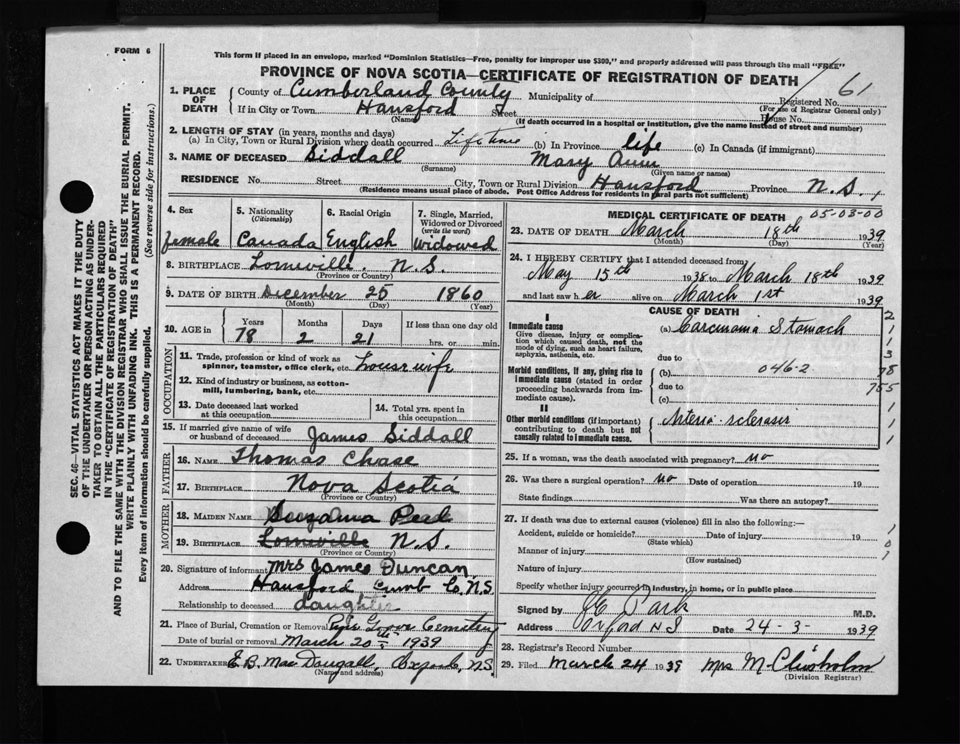 FORM 6
This form if placed in an envelope, marked "Dominion Statistics—Free, penalty for improper use $300," and properly addressed will pass through the mail "FREE"
PROVINCE OF NOVA SCOTIA—CERTIFICATE OF REGISTRATION OF DEATH
SEC. 46—VITAL STATISTICS ACT MAKES IT THE DUTY
OF THE UNDERTAKER OR PERSON ACTING AS UNDER-
TAKER TO OBTAIN ALL THE PARTICULARS REQUIRED
IN THE "CERTIFICATE OF REGISTRATION OF DEATH"
AND TO FILE THE SAME WITH THE DIVISION REGISTRAR WHO SHALL ISSUE THE BURIAL PERMIT.
WRITE PLAINLY WITH UNFADING INK. THIS IS A PERMANENT RECORD.
Every item of information should be carefully supplied. (See reverse side for instructions.)
1. PLACE OF DEATH
County of Cumberland County Municipality of Registered No. 61
(For use of Registrar General only)
If in City or Town Hansford Street House No.
(Name) (If death occurred in a hospital or institution, give the name instead of street and number)
2. LENGTH OF STAY (in years, months and days)
(a) In City, Town or Rural Division where death occurred Life time (b) In Province life (c) In Canada (if immigrant)
3. NAME OF DECEASED Siddall Mary Ann
(Surname) (Given name or names)
RESIDENCE No. Street City, Town or Rural Division Hansford Province N.S.,
(Residence means usual place of abode. Post Office Address for residents in rural parts not sufficient)
4. Sex female
5. Nationality (Citizenship) Canada
6. Racial Origin English
7. Single, Married, Widowed or Divorced (write the word) Widowed
8. BIRTHPLACE Lorneville. N.S.
(Province or Country)
9. DATE OF BIRTH December 25 1860
(Month) (Day) (Year)
10. AGE in Years Months Days If less than one day old
78 2 21 hrs. or min.
OCCUPATION
11. Trade, profession or kind of work as spinner, teamster, office clerk, etc. housewife
12. Kind of industry or business, as cotton-mill, lumbering, bank, etc.
13. Date deceased last worked at this occupation
14. Total yrs. spent in this occupation
15. If married give name of wife or husband of deceased James Siddall
FATHER
16. NAME Thomas Chase
17. BIRTHPLACE Nova Scotia
(Province or Country)
MOTHER
18. MAIDEN NAME
19. BIRTHPLACE Lorneville N.S.
(Province or Country)
20. Signature of informant Mrs James Duncan
Address Hansford Cumb Co, N.S.
Relationship to deceased daughter
21. Place of Burial, Cremation or Removal Grove Cemetery
Date of burial or removal March 20th 1939
22. UNDERTAKER E.B. MacDougall, Oxford, N.S.
(Name and address)
MEDICAL CERTIFICATE OF DEATH
05-03-00
23. DATE OF DEATH March 18th 1939
(Month) (Day) (Year)
24. I HEREBY CERTIFY that I attended deceased from
May 15th 1938 to March 18th 1939
and last saw her alive on March 1st 1939
CAUSE OF DEATH
I
Immediate cause
Give disease, injury or complication which caused death, not the mode of dying, such as heart failure, asphyxia, asthenia, etc.
(a) Carcinoma Stomach
due to
Morbid conditions, if any, giving rise to immediate cause (stated in order proceeding backwards from immediate cause)
(b) 046-2
due to
(c)
II
Other morbid conditions (if important) contributing to death but not causally related to immediate cause.
Arterio-sclerosis
2
1
1
3
78
755
1
1
1
25. If a woman, was the death associated with pregnancy? no
26. Was there a surgical operation? no Date of operation 19
State findings Was there an autopsy?
27. If death was due to external causes (violence) fill in also the following:—
Accident, suicide or homicide? Date of injury 19
(State which)
Manner of injury
(How sustained)
Nature of injury
Specify whether injury occurred in industry, in home, or in public place
1
0
1
Signed by M.D.
Address Oxford N S Date 24-3- 1939
28. Registrar's Record Number
29. Filed March 24 1939 Mrs M. Chisholm
(Division Registrar)